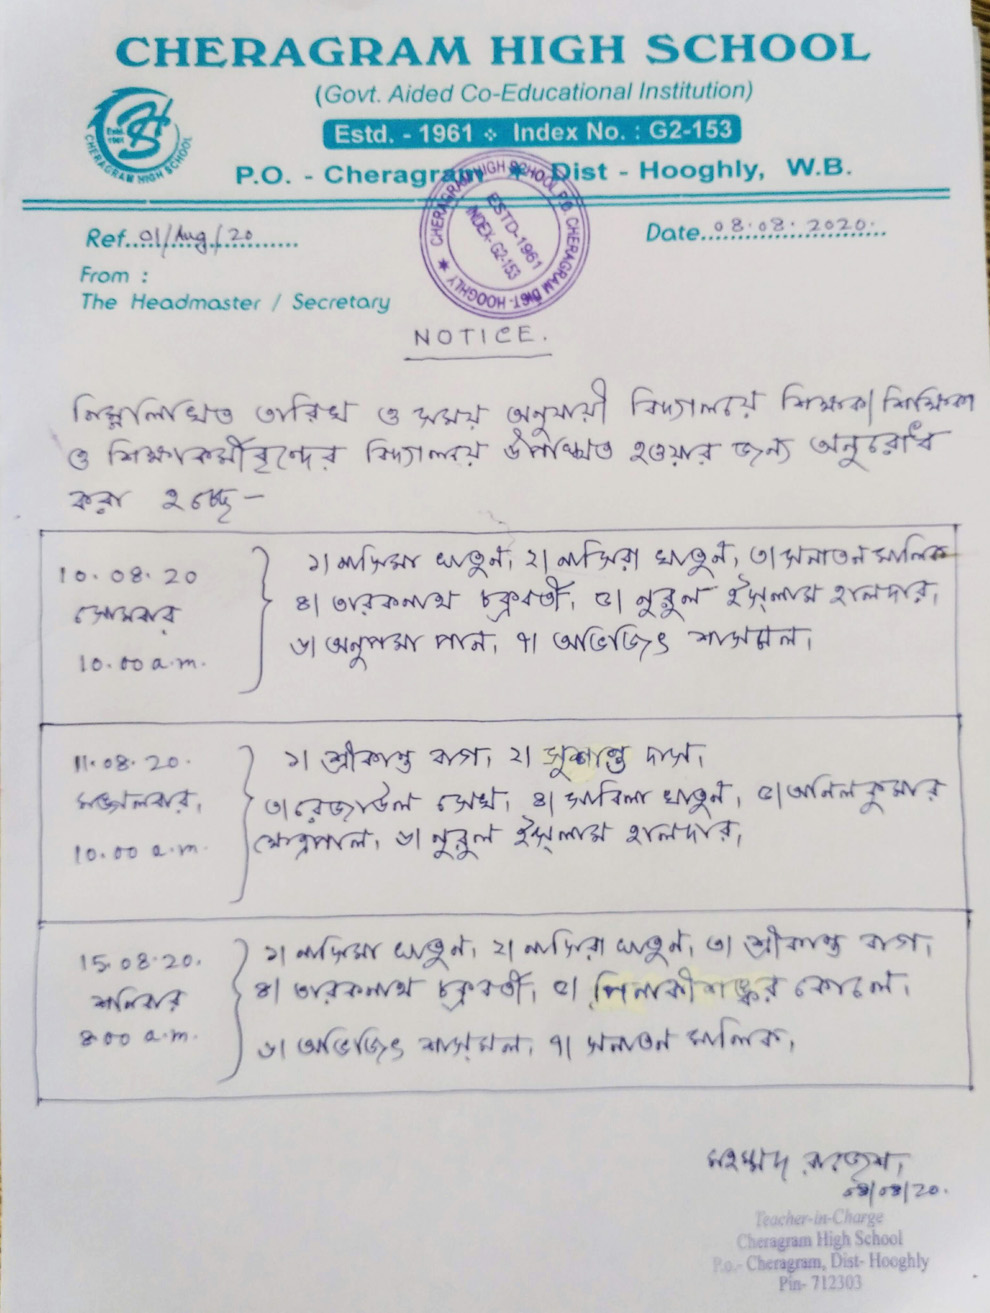 CHERAGRAM HIGH SCHOOL
(Govt. Aided Co-Educational Institution)
Estd. - 1961 ❖ Index No. : G2-153
P.O. - Cheragram ✱ Dist - Hooghly, W.B.
Estd. 1961
CHERAGRAM HIGH SCHOOL
CHERAGRAM HIGH SCHOOL P.O. CHERAGRAM DIST- HOOGHLY
ESTD-1961
INDEX- G2-153
Ref. 01/Aug/20
Date. 08.08.2020.
From :
The Headmaster / Secretary
NOTICE.
নিম্নলিখিত তারিখ ও সময় অনুযায়ী বিদ্যালয়ে শিক্ষক/শিক্ষিকা
ও শিক্ষাকর্মীবৃন্দের বিদ্যালয়ে উপস্থিত হওয়ার জন্য অনুরোধ
করা হচ্ছে –
10.08.20
সোমবার
10.00 a.m.
১। নাসিমা খাতুন, ২। নাসিরা খাতুন, ৩। সনাতন মালিক
৪। তারকনাথ চক্রবর্তী, ৫। নুরুল ইস্লাম হালদার,
৬। অনুপমা পান, ৭। অভিজিৎ শাসমল,
11.08.20.
মঙ্গলবার,
10.00 a.m.
১। শ্রীকান্ত বাগ, ২। সুশান্ত দাস,
৩। রেজাউল সেখ, ৪। সাবিনা খাতুন, ৫। অনিল কুমার
ক্ষেত্রপাল, ৬। নুরুল ইস্লাম হালদার,
15.08.20.
শনিবার
8.00 a.m.
১। নাসিমা খাতুন, ২। নাসিরা খাতুন, ৩। শ্রীকান্ত বাগ,
৪। তারকনাথ চক্রবর্তী, ৫। পিনাকীশঙ্কর কোলে,
৬। অভিজিৎ শাসমল, ৭। সনাতন মালিক,
মহম্মদ
08/08/20.
Teacher-in-Charge
Cheragram High School
P.o.- Cheragram, Dist- Hooghly
Pin- 712303